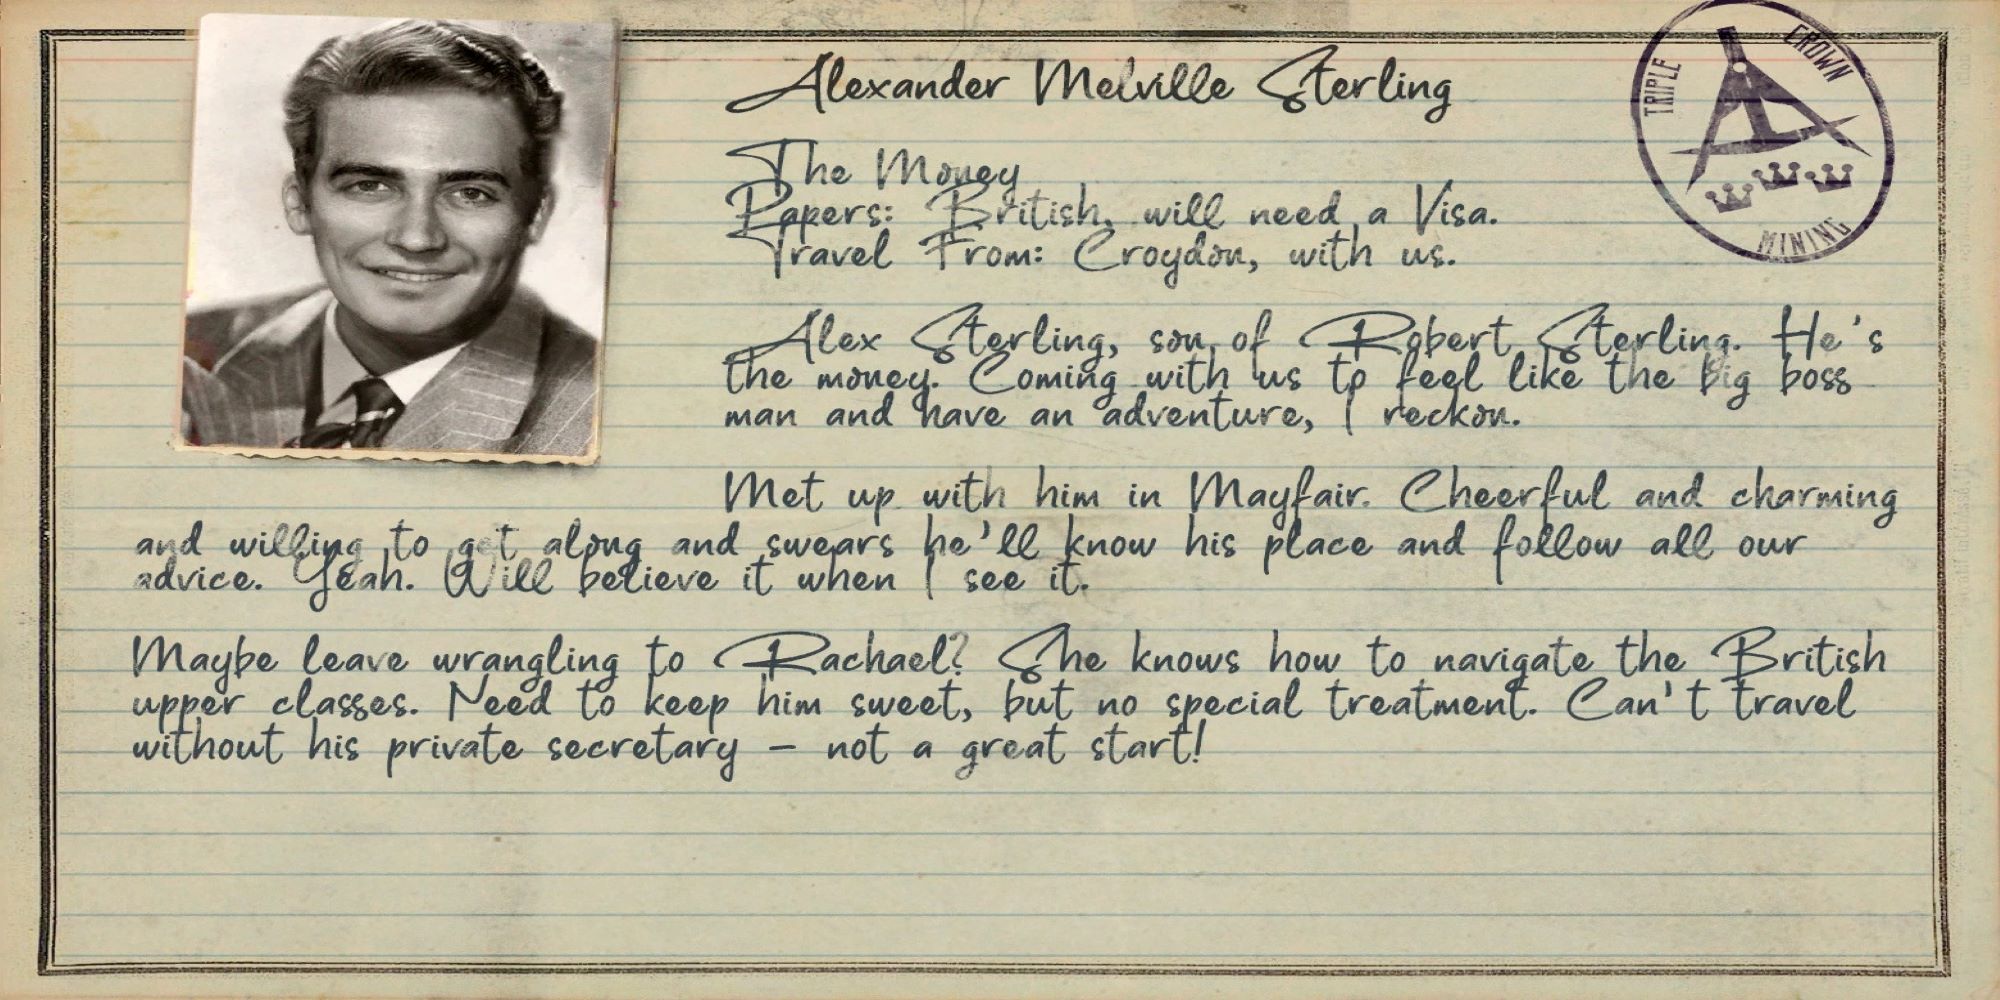 Alexander Melville Sterling
TRIPLE CROWN
MINING
The Money
Papers: British, will need a Visa.
Travel From: Croydon, with us.
Alex Sterling, son of Robert Sterling. He's
the money. Coming with us to feel like the big boss
man and have an adventure, I reckon.
Met up with him in Mayfair. Cheerful and charming
and willing to get along and swears he'll know his place and follow all our
advice. Yeah. Will believe it when I see it.
Maybe leave wrangling to Rachael? She knows how to navigate the British
upper classes. Need to keep him sweet, but no special treatment. Can't travel
without his private secretary – not a great start!